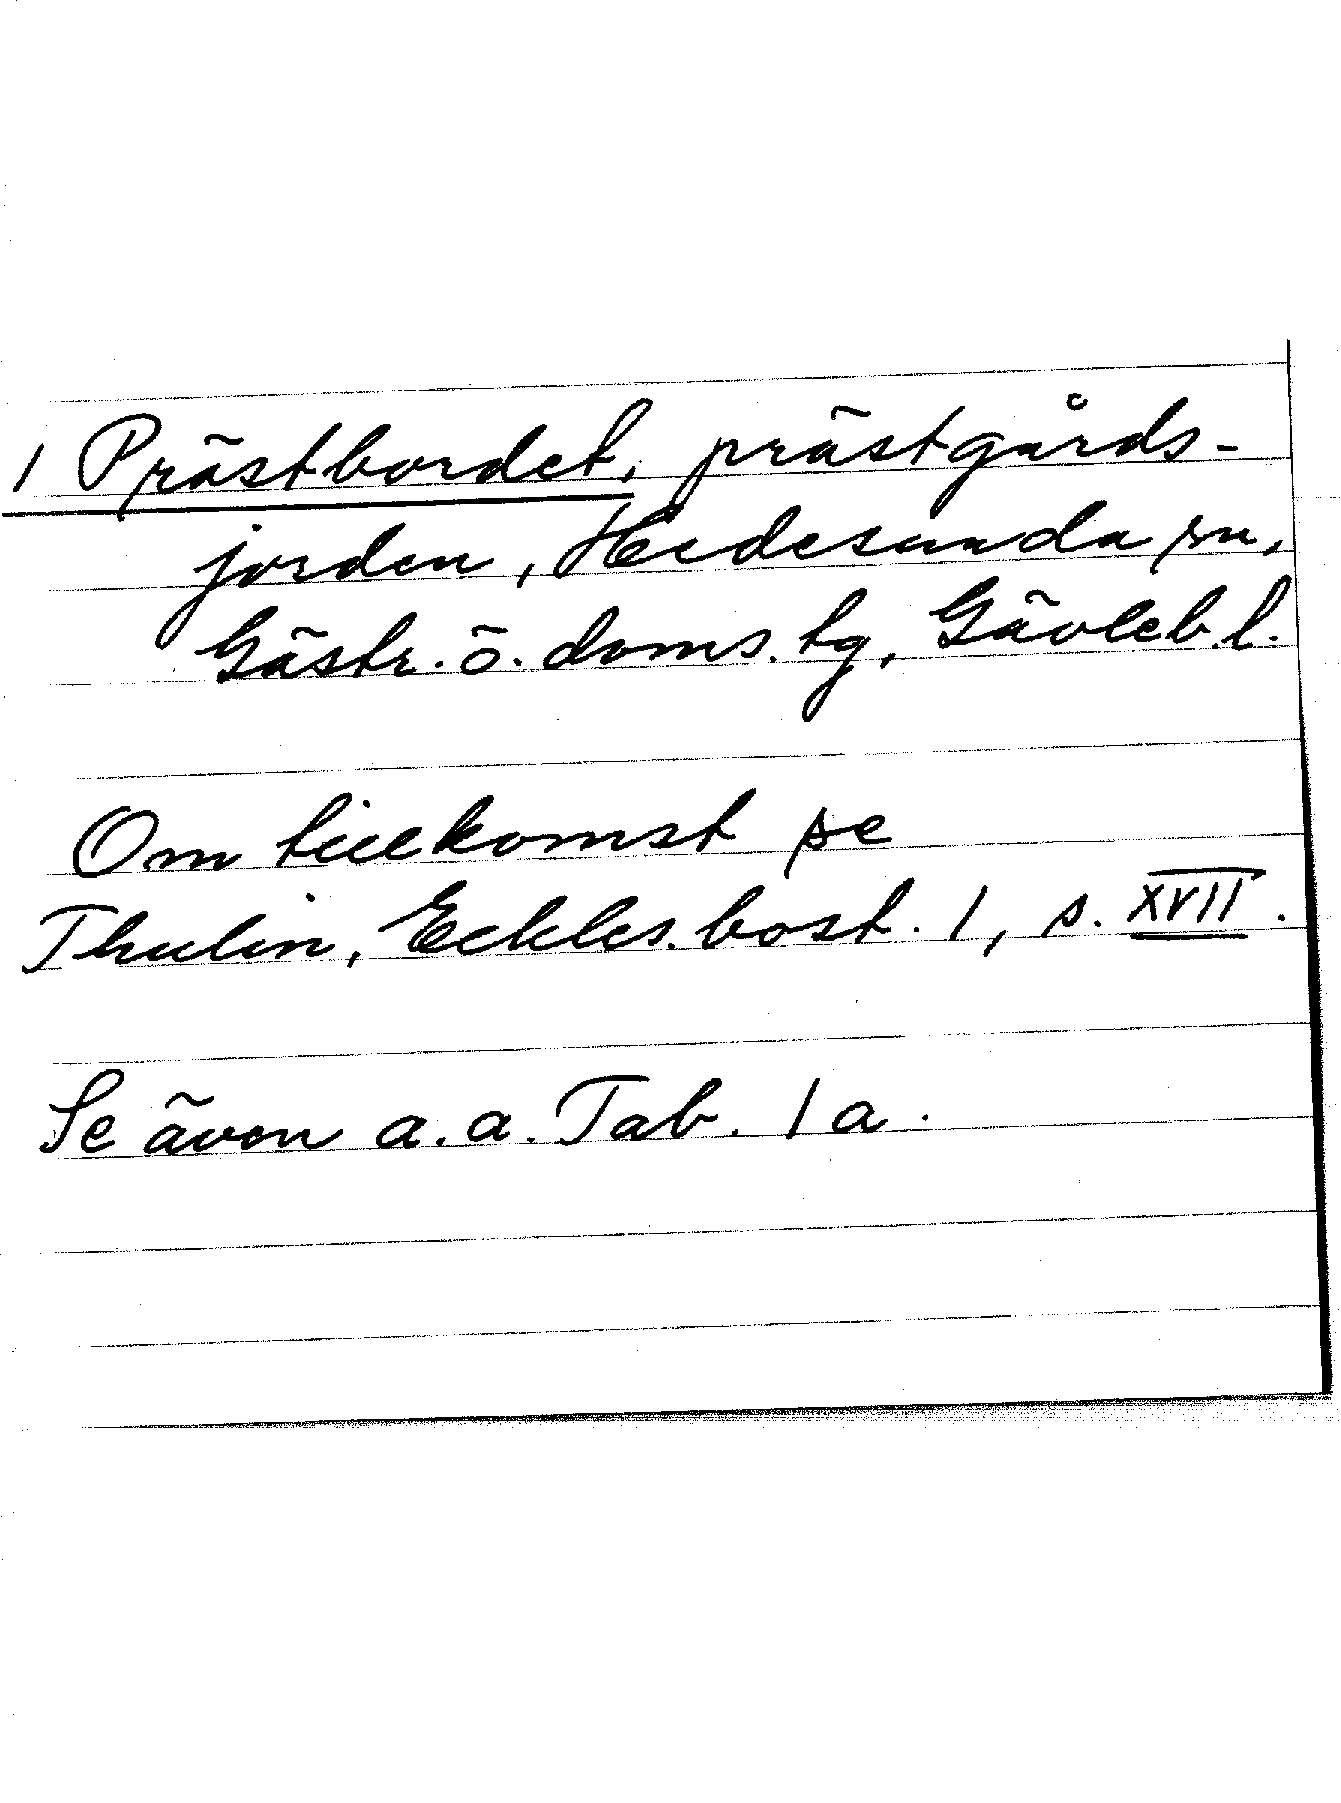 1 Prästbordet, prästgårds-
jorden, Hedesunda sn,
Gästr. ö. doms. tg, Gävleb. l.
Om tillkomst se
Thulin, Eckles. bost. 1, s. XVII.
Se även a. a. Tab. 1 a.